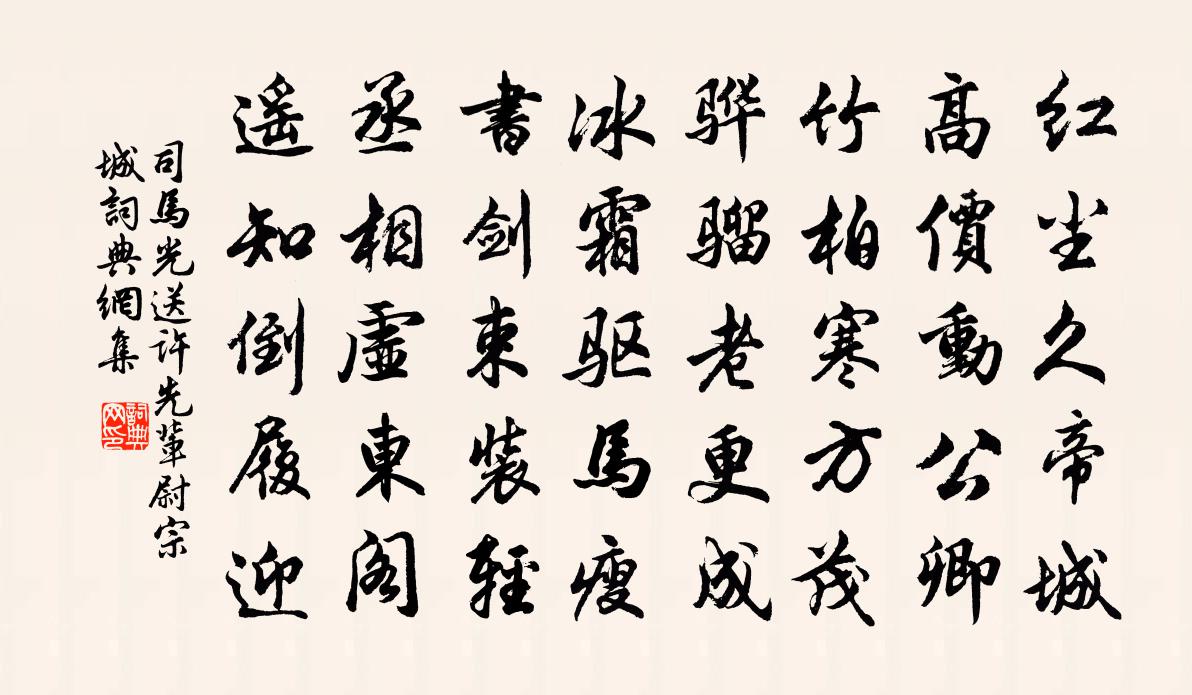 红尘久帝城
高價動公卿
竹柏寒方茂
骅骝老更成
冰霜驱馬瘦
書剑束装輕
丞相虛東阁
遥知倒履迎
司馬光送许先輩尉宗
城詞典網集
詞典
网印